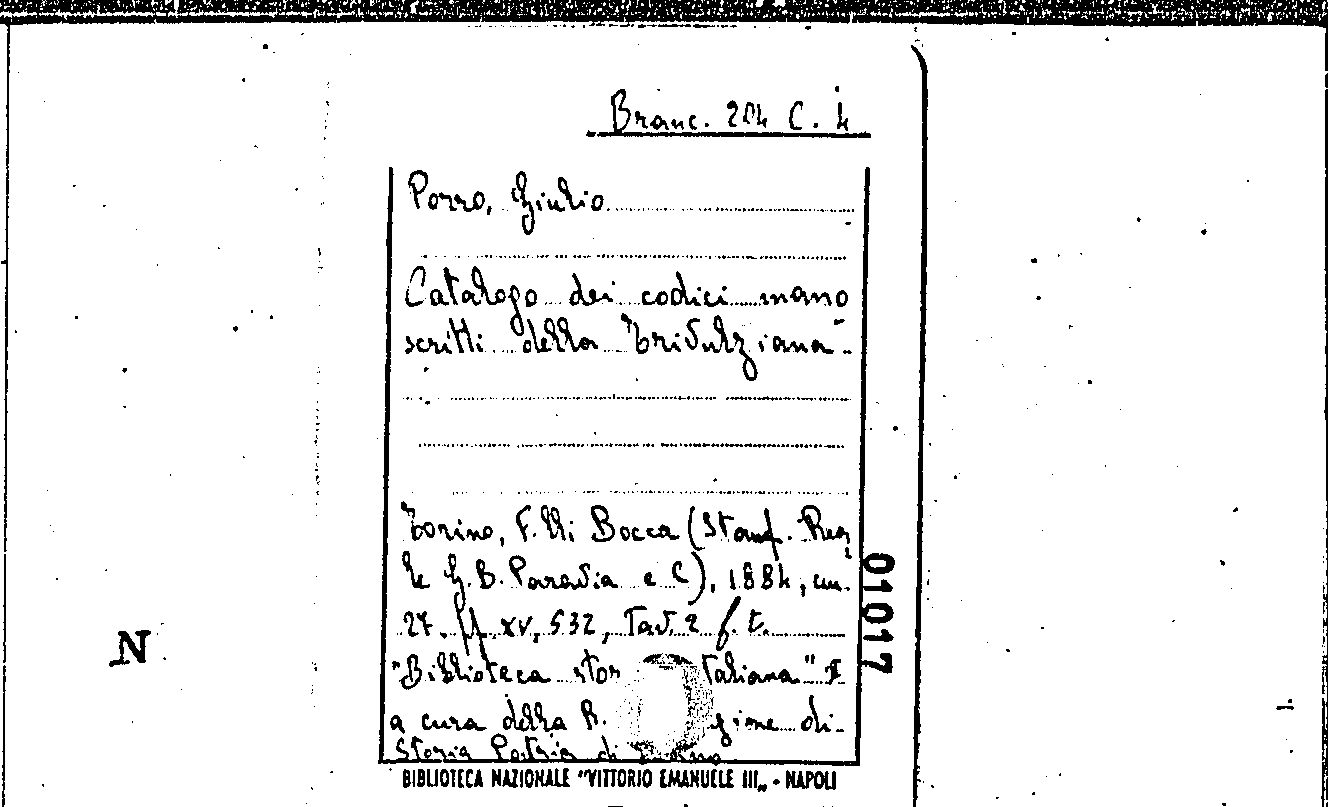 Branc. 204 C. 4
Porro, Giulio
Catalogo dei codici mano
scritti della "Trivulziana".
Torino, F.lli Bocca (Stamp. Rea
le G.B. Paravia e C), 1884, cm.
27. pp. XV, 532, Tav. 2 f. t.
"Biblioteca stor taliana" II
a cura della R. zione di
Storia Patria di
BIBLIOTECA NAZIONALE "VITTORIO EMANUELE III„ - NAPOLI
01017
N